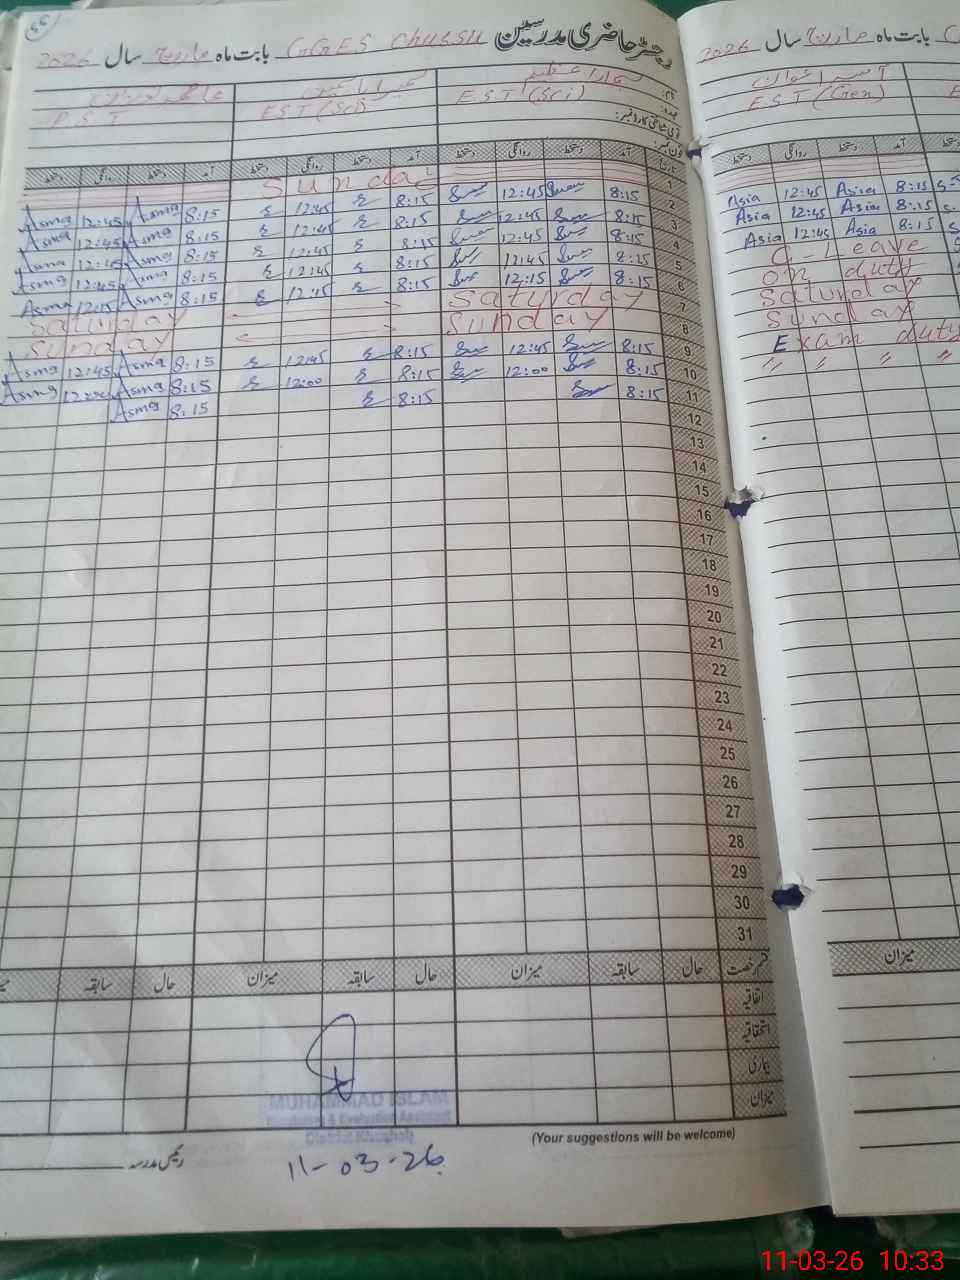 55
رجسٹر حاضری مدرسین GGES Chussu بابت ماہ مارچ سال 2026
بابت ماہ مارچ سال 2026
نام:
عہدہ: E.S.T (Sci) EST (Sci) P.S.T
E.S.T (Gen)
قومی شناختی کارڈ نمبر:
فون نمبر:
تاریخ آمد دستخط روانگی دستخط آمد دستخط روانگی دستخط آمد دستخط روانگی دستخط
آمد دستخط روانگی دستخط
1 Sunday
2 8:15 12:45 8:15 12:45 8:15 Asma 12:45 Asma
8:15 Asia 12:45 Asia
3 8:15 12:45 8:15 12:45 8:15 Asma 12:45 Asma
8:15 Asia 12:45 Asia
4 8:15 12:45 8:15 12:45 8:15 Asma 12:45 Asma
8:15 Asia 12:45 Asia
5 8:15 12:45 8:15 12:45 8:15 Asma 12:45 Asma
C-Leave
6 8:15 12:15 8:15 12:15 8:15 Asma 12:15 Asma
on duty
7 Saturday Saturday
Saturday
8 Sunday Sunday
Sunday
9 8:15 12:45 8:15 12:45 8:15 Asma 12:45 Asma
Exam duty
10 8:15 12:00 8:15 12:00 8:15 Asma 12:00 Asma
" " " "
11 8:15 8:15 8:15 Asma
12
13
14
15
16
17
18
19
20
21
22
23
24
25
26
27
28
29
30
31
قسم رخصت حال سابقہ میزان حال سابقہ میزان حال سابقہ
میزان
اتفاقیہ
استحقاقیہ
بیماری
میزان
MUHAMMAD ISLAM
Monitoring & Evaluation Assistant
District Khushab
(Your suggestions will be welcome)
رئیس مدرسہ
11-03-26
11-03-26 10:33